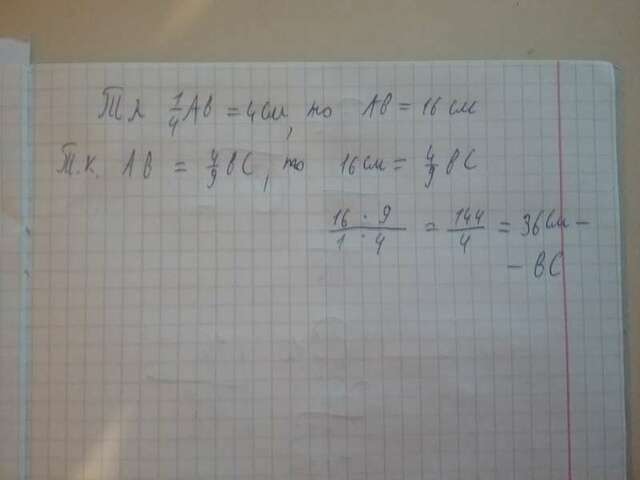 Т.к. 1/4 АВ = 4см, то АВ = 16см
Т.к. АВ = 4/9 ВС, то 16см = 4/9 ВС
16 · 9 / 1 · 4 = 144/4 = 36см –
– ВС